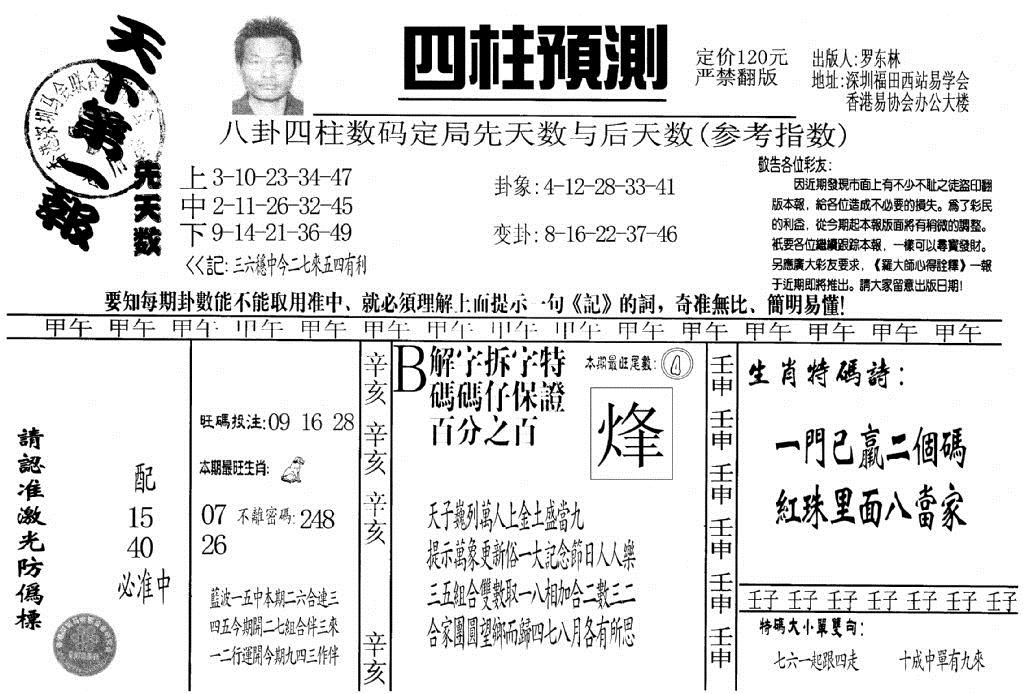 天下第一報
四柱預測
定价120元
严禁翻版
出版人:罗东林
地址:深圳福田西站易学会
香港易协会办公大楼
八卦四柱数码定局先天数与后天数(参考指数)
先天数
上 3-10-23-34-47
中 2-11-26-32-45
下 9-14-21-36-49
<<記: 三六穩中今二七來五四有利
卦象: 4-12-28-33-41
变卦: 8-16-22-37-46
敬告各位彩友:
因近期發現市面上有不少不耻之徒盜印翻
版本報，給各位造成不必要的損失。爲了彩民
的利益，從今期起本報版面將有稍微的調整。
衹要各位繼續跟踪本報，一樣可以尋寶發財。
另應廣大彩友要求，《羅大師心得詮釋》一報
于近期即將推出。請大家留意出版日期!
要知每期卦數能不能取用准中、就必須理解上面提示一句《記》的詞，奇准無比、簡明易懂!
甲午 甲午 甲午 甲午 甲午 甲午 甲午 甲午 甲午 甲午 甲午 甲午 甲午 甲午 甲午
請認准激光防僞標
配
15
40
必准中
旺碼投注: 09 16 28
本期最旺生肖:
07 不離密碼: 248
26
藍波一五中本期二六合連三
四五今期開二七組合伴三來
一二行運開今期九四三作伴
辛亥 辛亥 辛亥 辛亥
B 解字拆字特
碼碼仔保證
百分之百
本期最旺尾數:
烽
天子巍列萬人上金土盛當九
提示萬象更新俗一大記念節日人人樂
三五組合雙數取一八相加合二數三二
合家團圓望鄉而歸四七八月各有所思
壬申 壬申 壬申 壬申 壬申 壬申
生肖特碼詩:
一門已贏二個碼
紅珠里面八當家
壬子 壬子 壬子 壬子 壬子 壬子 壬子
特碼大小單雙句:
七六一起跟四走 十成中單有九來